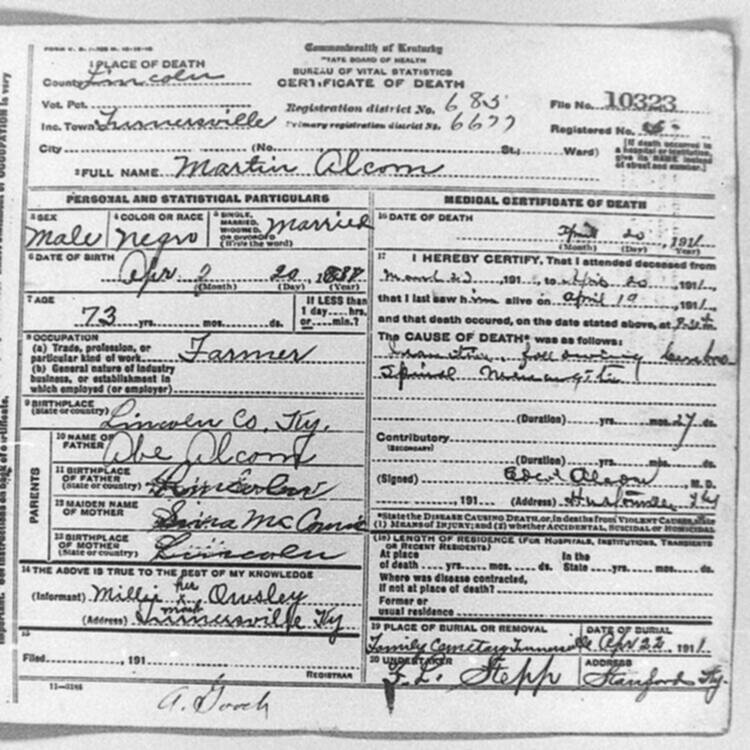 Commonwealth of Kentucky
STATE BOARD OF HEALTH
BUREAU OF VITAL STATISTICS
CERTIFICATE OF DEATH
1 PLACE OF DEATH
County Lincoln
Vot. Pct.
Registration district No. 685
File No. 10323
Inc. Town Turnersville
Primary registration district No. 6677
Registered No.
City (No. St.; Ward)
[If death occurred in
a hospital or institution,
give its NAME instead
of street and number.]
2 FULL NAME Martin Alcorn
PERSONAL AND STATISTICAL PARTICULARS
3 SEX Male
4 COLOR OR RACE Negro
5 SINGLE, MARRIED, WIDOWED, OR DIVORCED (Write the word) Married
6 DATE OF BIRTH
Apr 20
(Month) (Day) (Year)
7 AGE
73 yrs. mos. ds.
If LESS than
1 day hrs.
or min.?
8 OCCUPATION
(a) Trade, profession, or
particular kind of work Farmer
(b) General nature of industry
business, or establishment in
which employed (or employer)
9 BIRTHPLACE
(State or country) Lincoln Co. Ky.
PARENTS
10 NAME OF
FATHER Abe Alcorn
11 BIRTHPLACE
OF FATHER
(State or country) Lincoln
12 MAIDEN NAME
OF MOTHER
13 BIRTHPLACE
OF MOTHER
(State or country) Lincoln
14 THE ABOVE IS TRUE TO THE BEST OF MY KNOWLEDGE
(Informant) Millie her mark Owsley
(Address) Turnersville Ky
15
Filed 191
REGISTRAR
11-3184
A. Gooch
MEDICAL CERTIFICATE OF DEATH
16 DATE OF DEATH
April 20, 1911
(Month) (Day) (Year)
17 I HEREBY CERTIFY, That I attended deceased from
March 23, 191 , to April 20, 1911,
that I last saw him alive on April 19, 1911,
and that death occured, on the date stated above, at
The CAUSE OF DEATH* was as follows:
following
Spinal
(Duration) yrs. mos. 27 ds.
Contributory
(SECONDARY)
(Duration) yrs. mos. ds.
(Signed) Alcorn, M. D.
191 (Address) Hustonville Ky
*State the DISEASE CAUSING DEATH, or, in deaths from VIOLENT CAUSES, state
(1) MEANS OF INJURY; and (2) whether ACCIDENTAL, SUICIDAL or HOMICIDAL
(18) LENGTH OF RESIDENCE (FOR HOSPITALS, INSTITUTIONS, TRANSIENTS
OR RECENT RESIDENTS)
At place of death yrs. mos. ds. In the State yrs. mos. ds.
Where was disease contracted,
if not at place of death?
Former or
usual residence
19 PLACE OF BURIAL OR REMOVAL
Family Cemetary Turnersville
DATE OF BURIAL
Apr 22, 1911
20 UNDERTAKER
F. L. Stepp
ADDRESS
Stanford Ky.